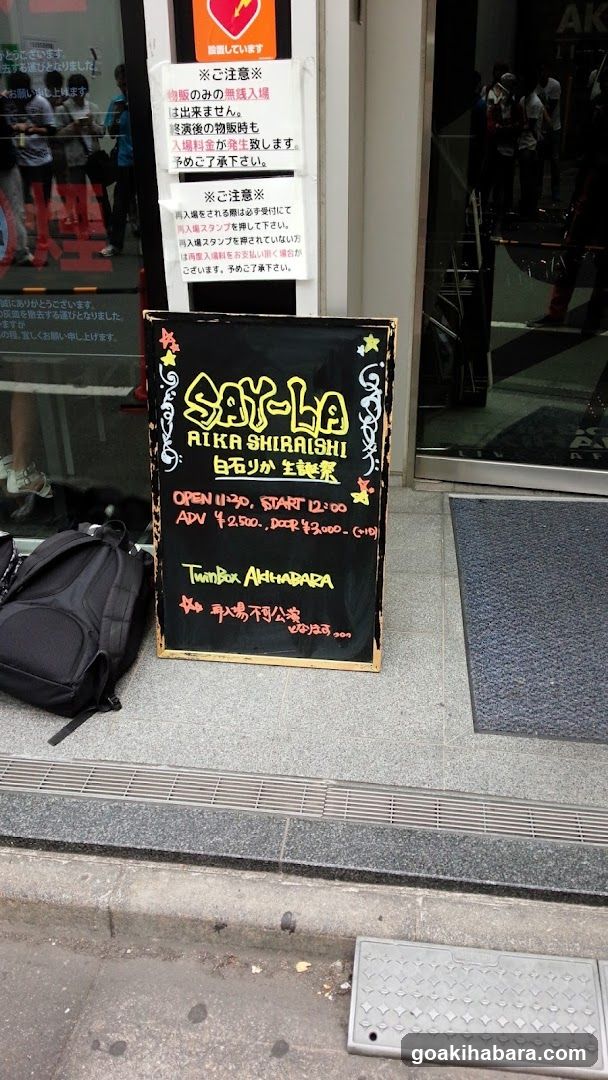 設置しています
※ご注意※
物販のみの無銭入場
は出来ません。
終演後の物販時も
入場料金が発生致します。
予めご了承下さい。
※ご注意※
再入場をされる際は必ず受付にて
再入場スタンプを押して下さい。
再入場スタンプを押されていない方
は再度入場料をお支払い頂く場合が
ございます。予めご了承下さい。
SAY-LA
RIKA SHIRAISHI
白石りか 生誕祭
OPEN 11:30, START 12:00
ADV ¥2,500-, DOOR ¥3,000- (+1D)
TwinBox AKIHABARA
再入場不可公演
となります…
goakihabara.com